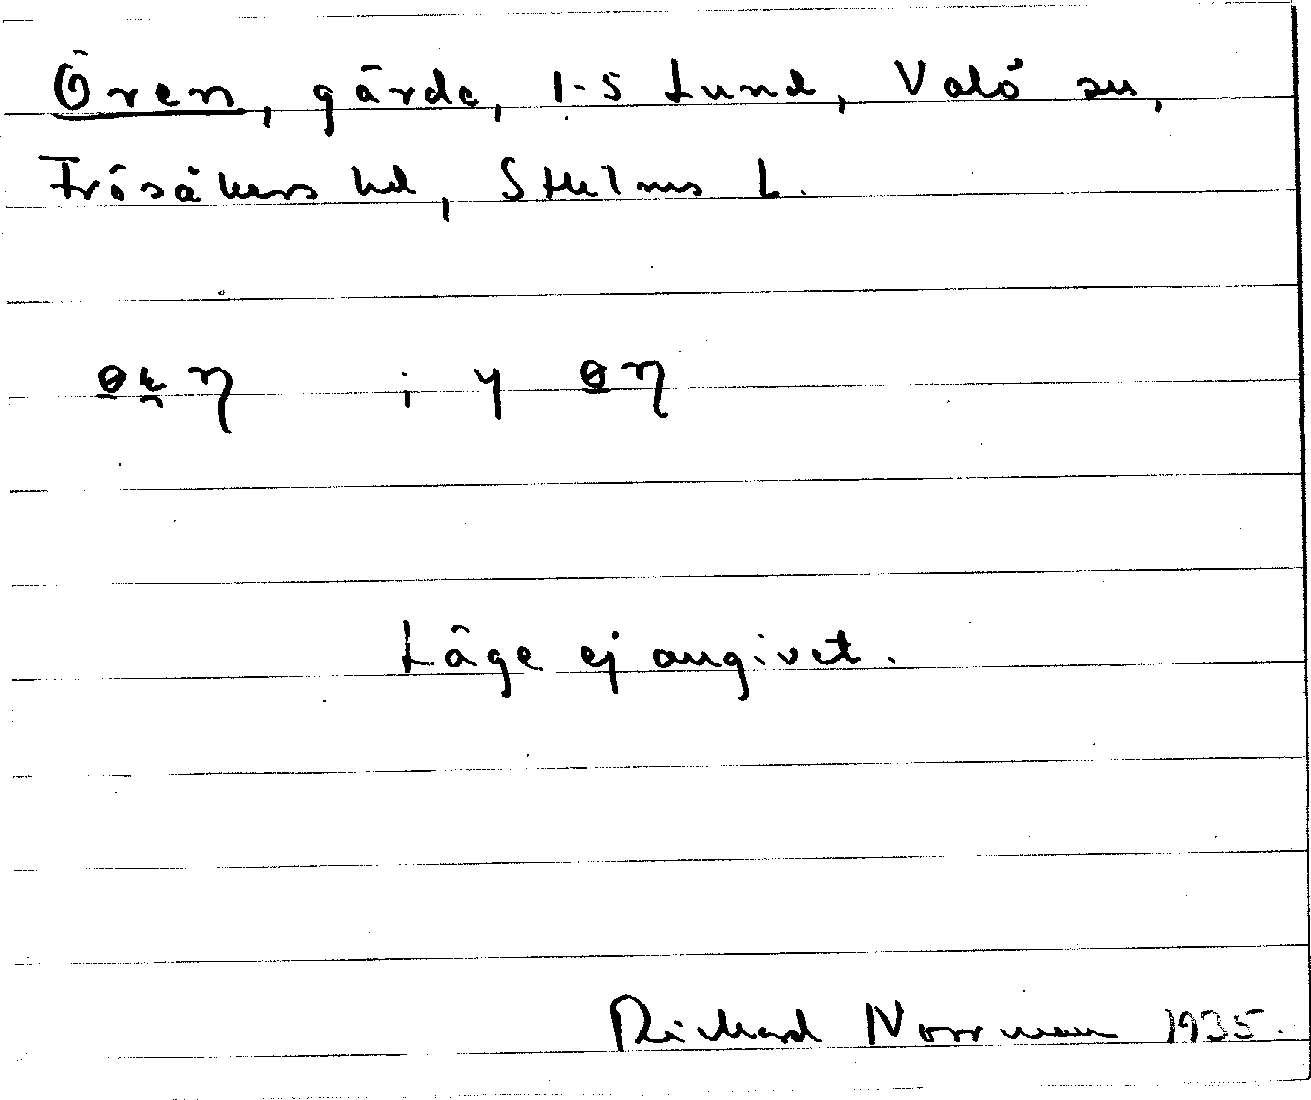 Ören, gärde, 1-5 Lund, Valö sn,
Frösåkers hd, Sthlms L.
i y
Läge ej angivet.
Richard Norrman 1935.